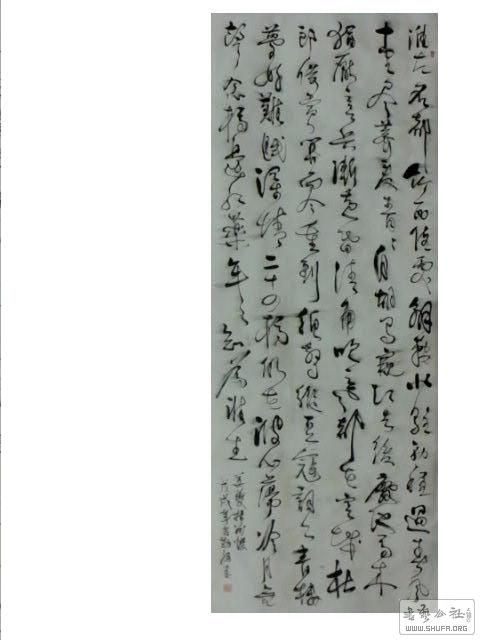 淮左名都竹西佳處解鞍少駐初程過春風
十里盡薺麥青青自胡馬窺江去後廢池喬木
猶厭言兵漸黃昏清角吹寒都在空城杜
郎俊賞算而今重到須驚縱豆蔻詞工青樓
夢好難賦深情二十四橋仍在波心蕩冷月無
聲念橋邊紅藥年年知為誰生
姜夔揚州慢
戊戌年
书艺公社
WWW.SHUFA.ORG